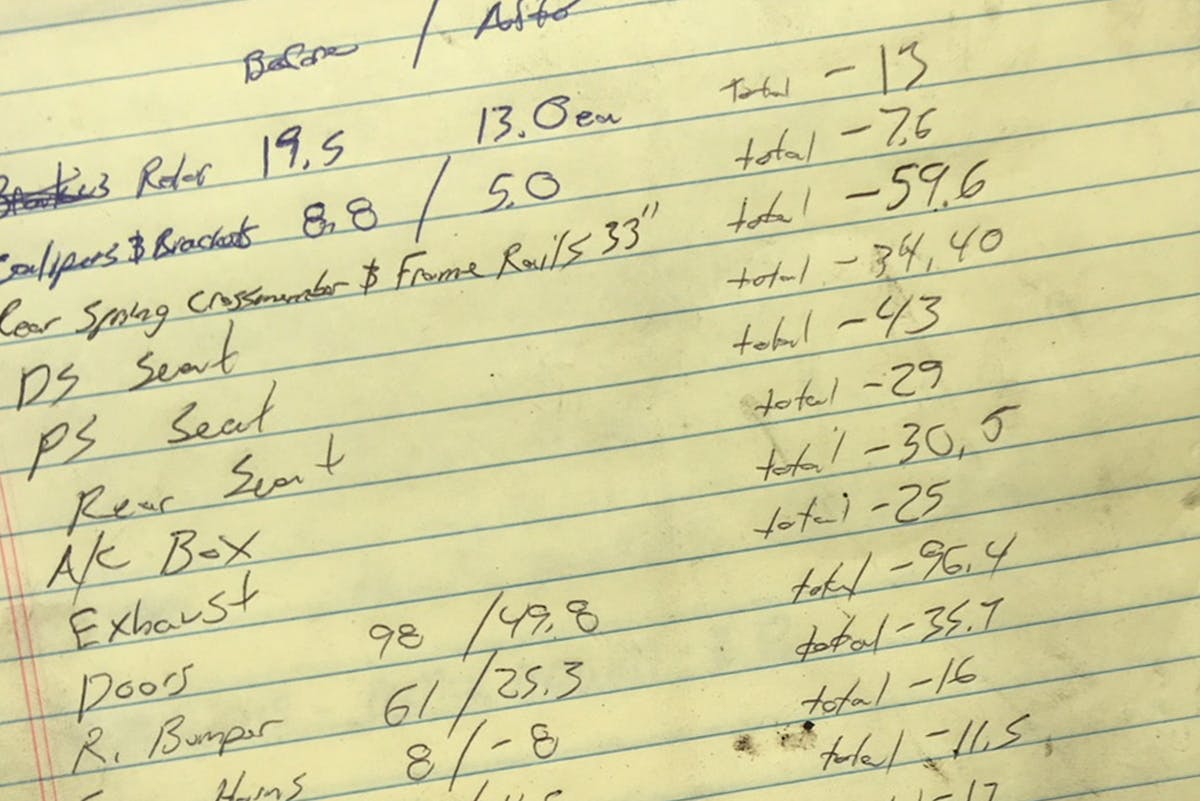 Before / After
Rotor 19.5 13.0 ea total -13
Calipers & Brackets 8.8 / 5.0 total -7.6
Rear Spring Crossmember & Frame Rails 33" total -59.6
DS Seat total -34.40
PS Seat total -43
Rear Seat total -29
A/C Box total -30.5
Exhaust total -25
Doors 98 / 49.8 total -96.4
R. Bumper 61 / 25.3 total -35.7
Horns 8 / -8 total -16
total -11.5